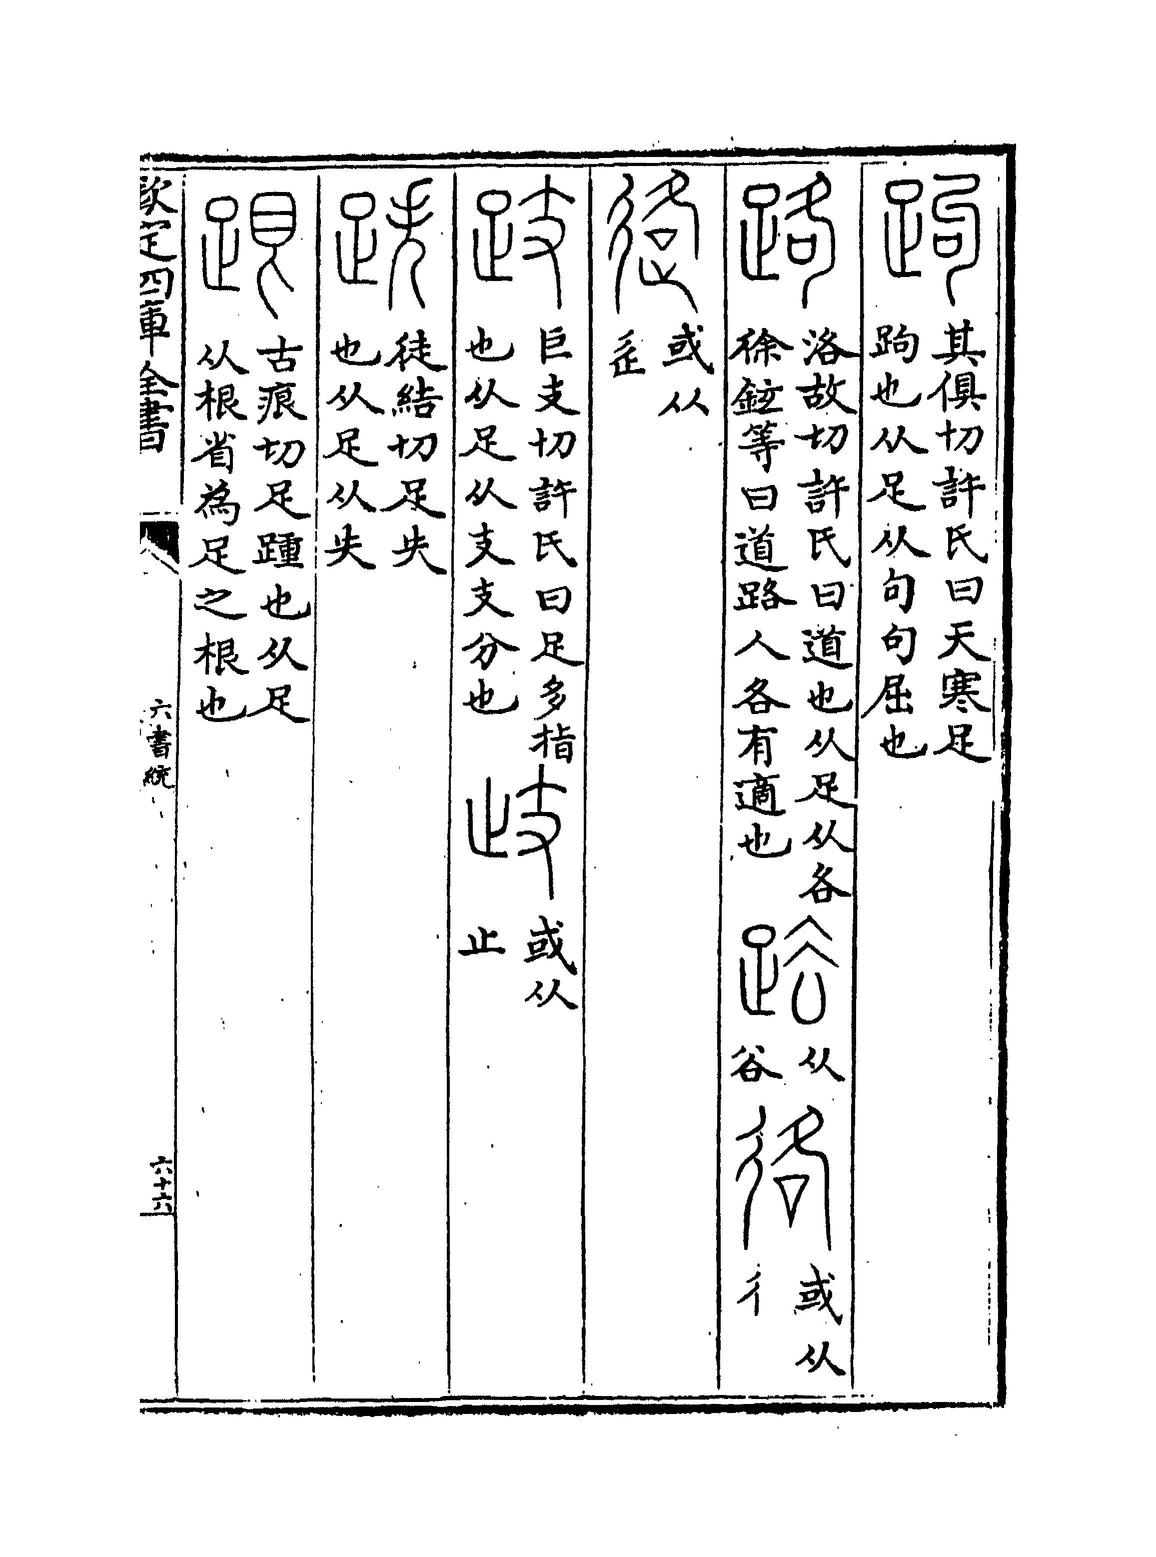 跔
其俱切許氏曰天寒足
跔也从足从句句屈也
路
洛故切許氏曰道也从足从各
徐鉉等曰道路人各有適也
从
谷
或从
彳
或从
辵
跂
巨支切許氏曰足多指
也从足从支支分也
歧
或从
止
跌
徒結切足失
也从足从失
跟
古痕切足踵也从足
从根省為足之根也
欽定四庫全書
六書統
六十六